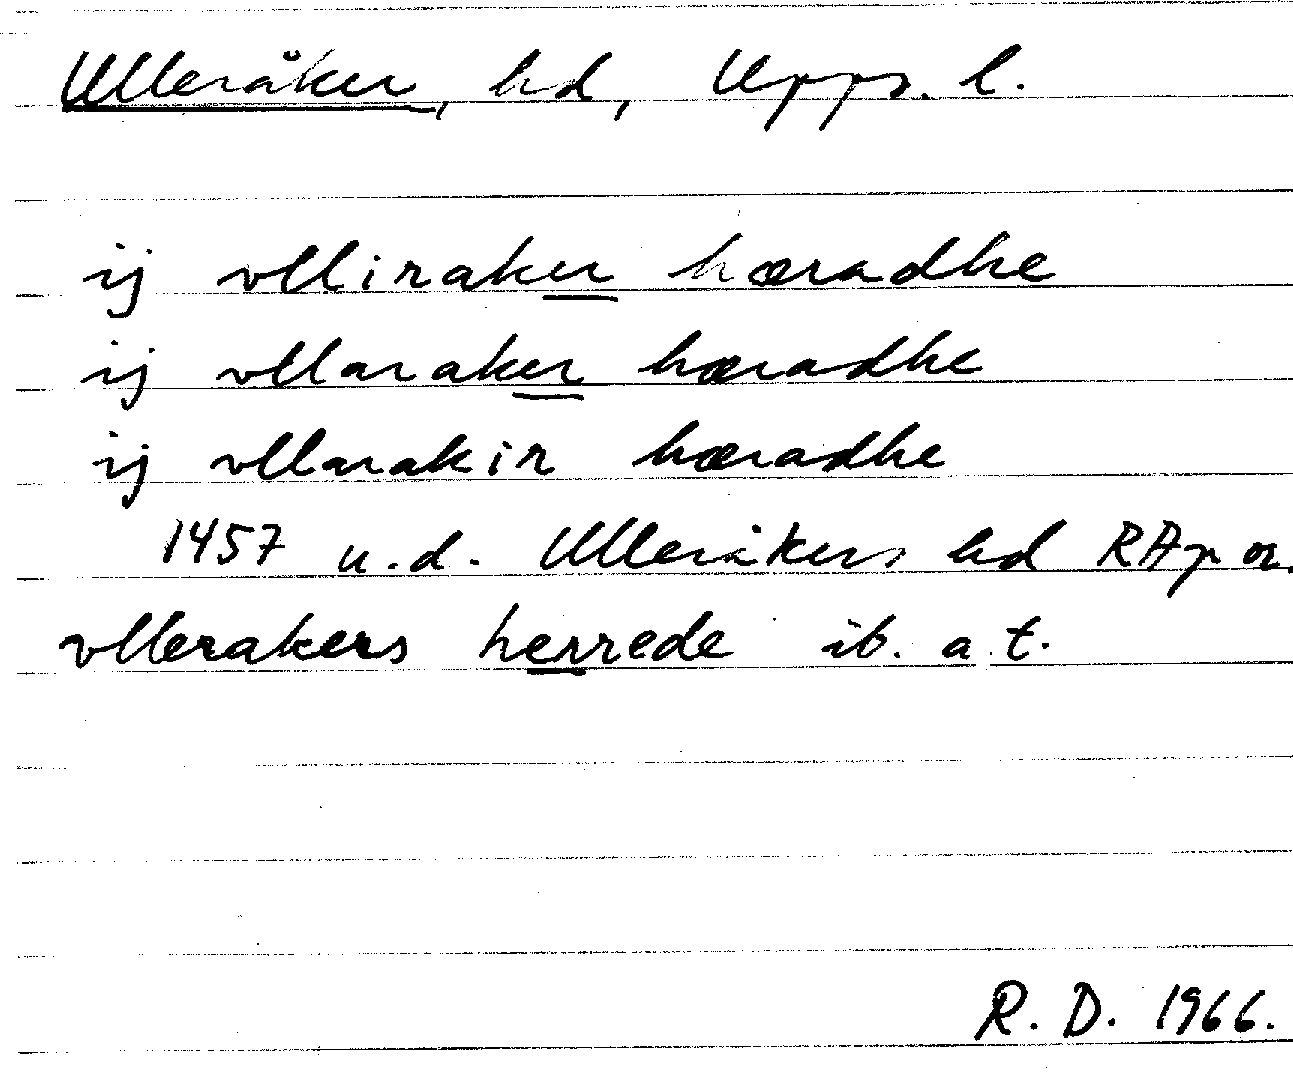 Ulleråker, hd, Upps. l.
ij vlliraker hæradhe
ij vllaraker hæradhe
ij vllarakir hæradhe
1457 u.d. Ulleråkers hd RAp or.
vllerakers herrede ib. a.t.
R. D. 1966.